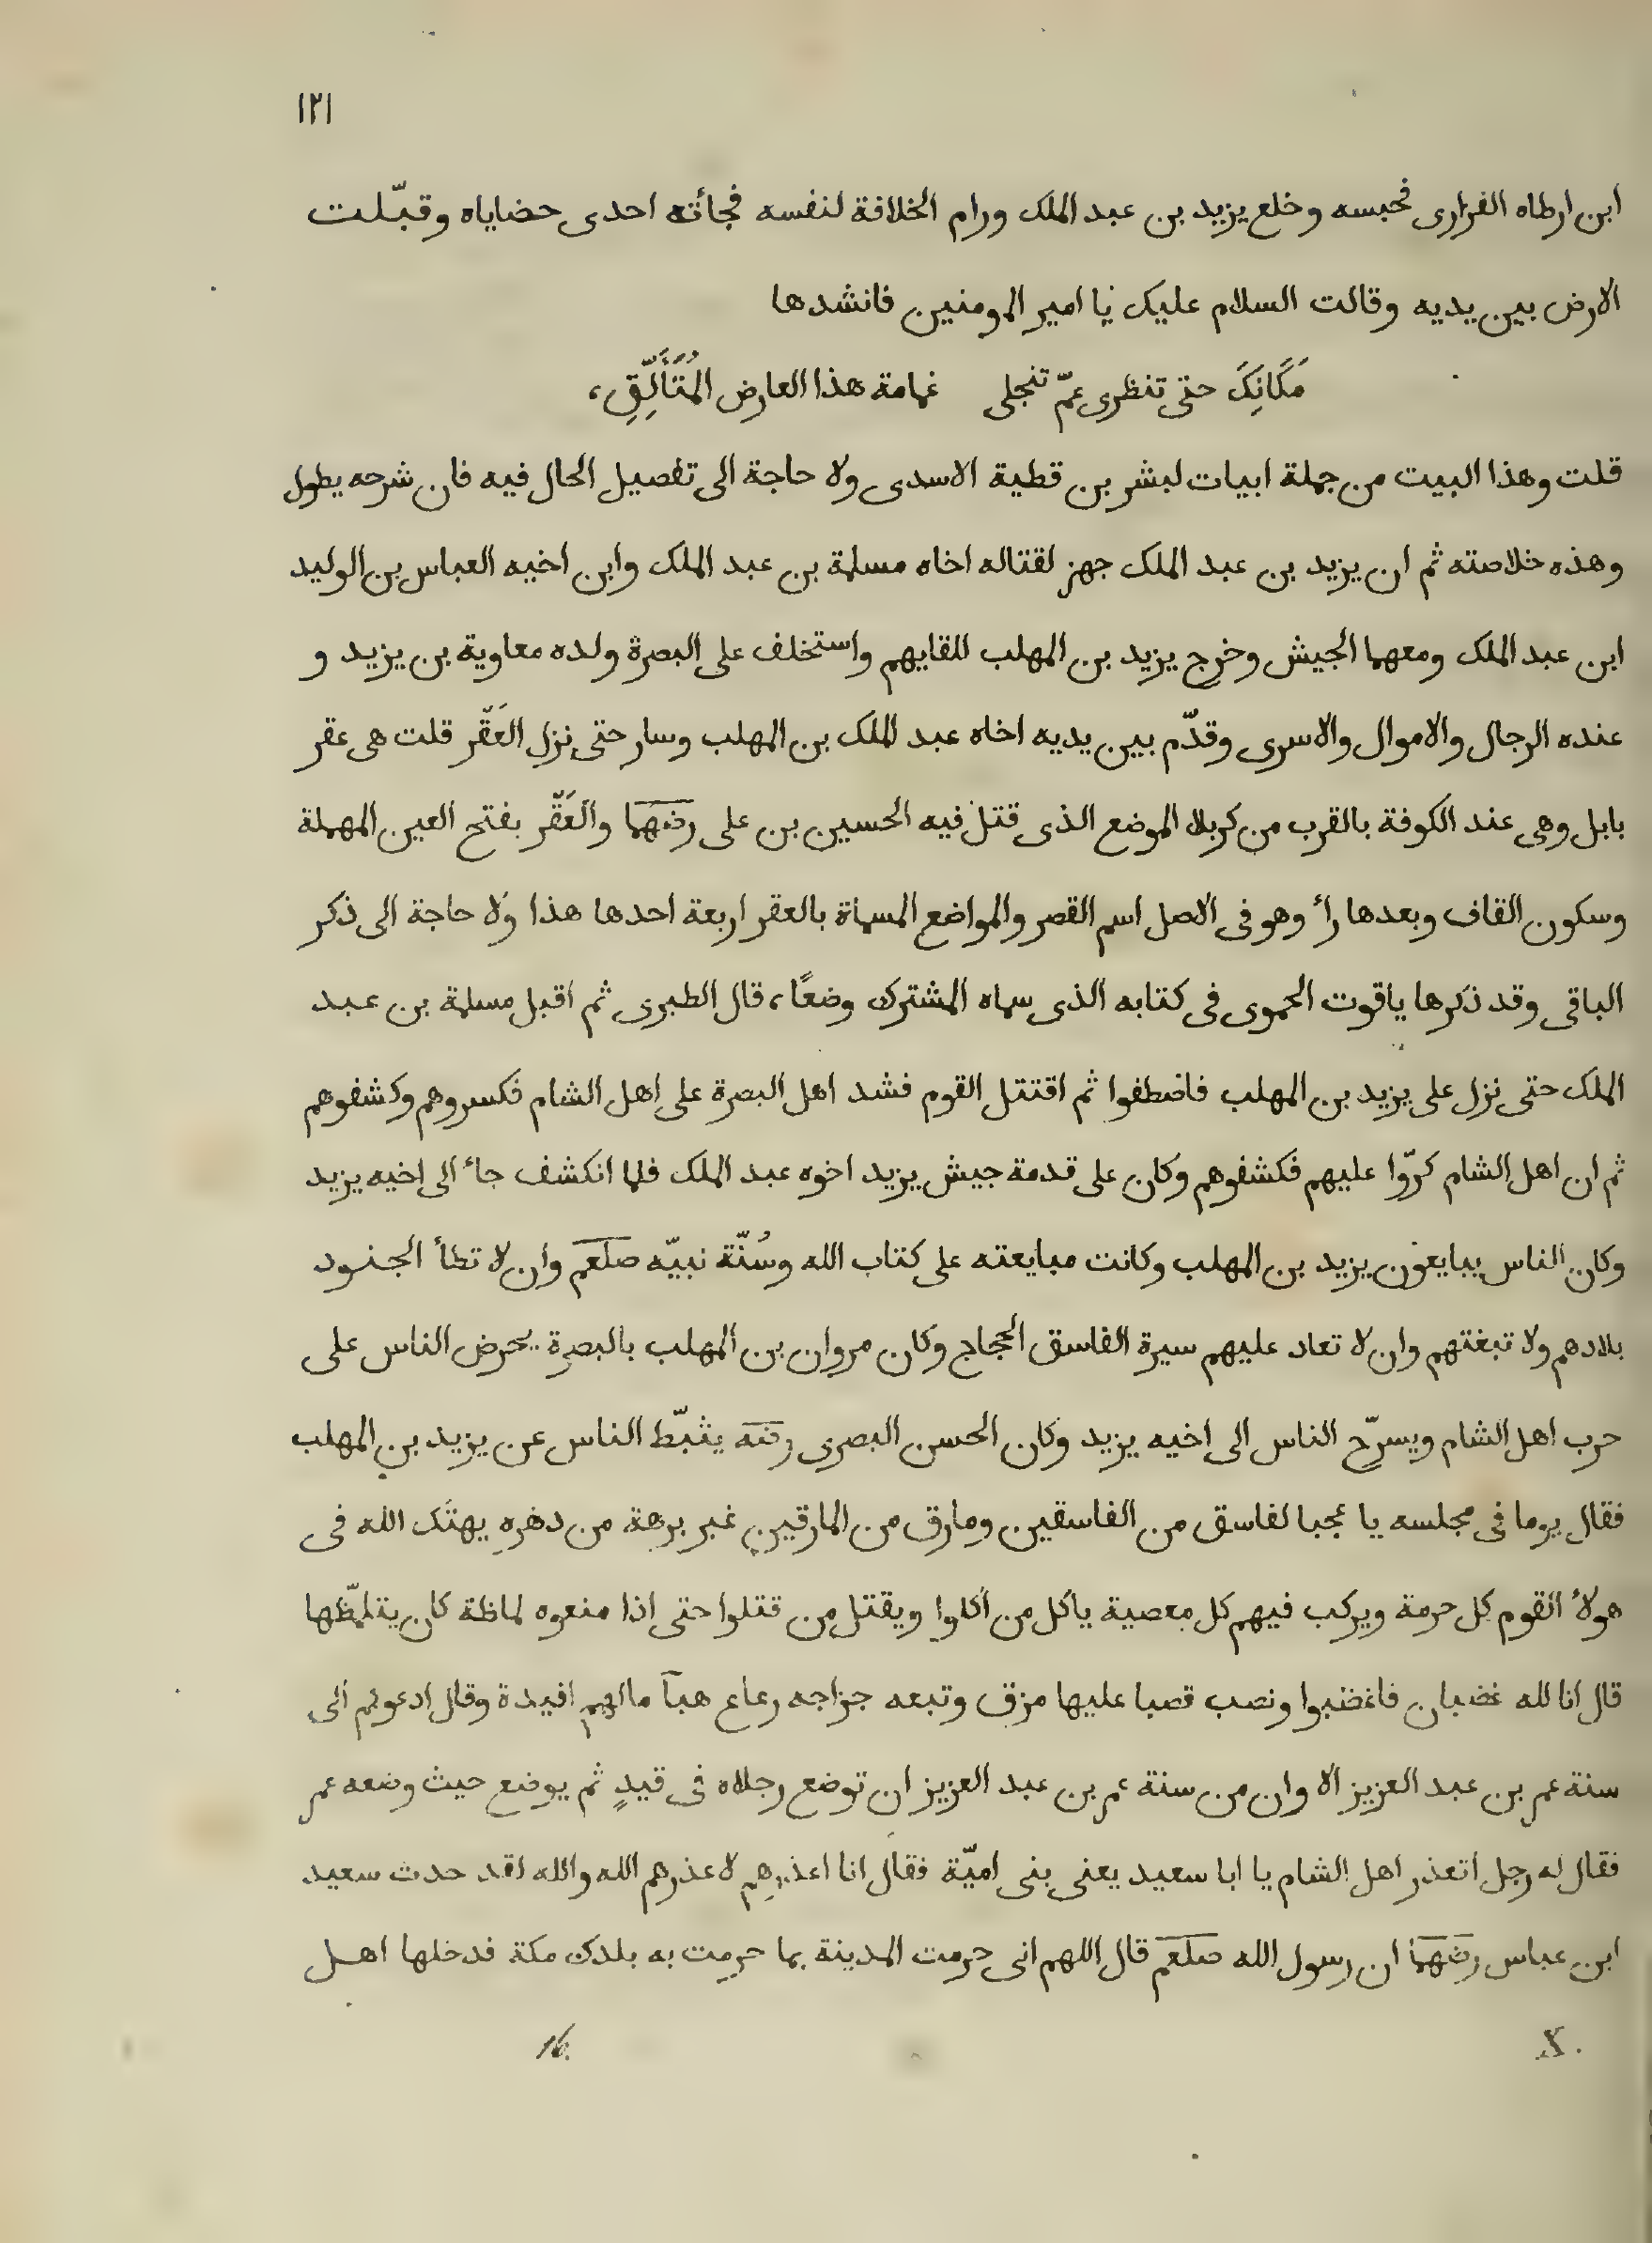 ١٢١
ابن ارطاه الفزارى فحبسه وخلع يزيد بن عبد الملك ورام الخلافة لنفسه فجأته احدى حضاياه وقبّلت
الارض بين يديه وقالت السلام عليك يا امير المومنين فانشدها
مَكَانَكِ حتى تنظرى عمّ تنجلى غمامة هذا العارض المُتَأَلِّقِ،
قلت وهذا البيت من جملة ابيات لبشر بن قطية الاسدى ولا حاجة الى تفصيل الحال فيه فان شرحه يطول
وهذه خلاصته ثم ان يزيد بن عبد الملك جهز لقتاله اخاه مسلمة بن عبد الملك وابن اخيه العباس بن الوليد
ابن عبد الملك ومعهما الجيش وخرج يزيد بن المهلب للقايهم واستخلف على البصرة ولده معاوية بن يزيد و
عنده الرجال والاموال والاسرى وقدّم بين يديه اخاه عبد الملك بن المهلب وسار حتى نزل العَقْر قلت هى عقر
بابل وهى عند الكوفة بالقرب من كربلا الموضع الذى قتل فيه الحسين بن على رضهما والعَقْر بفتح العين المهملة
وسكون القاف وبعدها رأ وهو فى الاصل اسم القصر والمواضع المسماة بالعقر اربعة احدها هذا ولا حاجة الى ذكر
الباقى وقد ذكرها ياقوت الحموى فى كتابه الذى سماه المشترك وضعًا، قال الطبرى ثم اقبل مسلمة بن عبد
الملك حتى نزل على يزيد بن المهلب فاضطفوا ثم اقتتل القوم فشد اهل البصرة على اهل الشام فكسروهم وكشفوهم
ثم ان اهل الشام كرّوا عليهم فكشفوهم وكان على قدمة جيش يزيد اخوه عبد الملك فلما انكشف جاء الى اخيه يزيد
وكان الناس يبايعون يزيد بن المهلب وكانت مبايعته على كتاب الله وسُنّة نبيّه صلعم وان لا تطأ الجنود
بلادهم ولا تبغتهم وان لا تعاد عليهم سيرة الفاسق الحجاج وكان مروان بن المهلب بالبصرة يحرض الناس على
حرب اهل الشام ويسرّح الناس الى اخيه يزيد وكان الحسن البصرى رضه يثبّط الناس عن يزيد بن المهلب
فقال يوما فى مجلسه يا عجبا لفاسق من الفاسقين ومارق من المارقين غبر برهة من دهره يهتك الله فى
هولأ القوم كل حرمة ويركب فيهم كل معصية ياكل من اكلوا ويقتل من قتلوا حتى اذا منعوه لماظة كان يتلمّظها
قال انا لله غضبان فاغضبوا ونصب قصبا عليها مزق وتبعه جزاجه رعاع هبآ مالهم افيدة وقال ادعوكم الى
سنة عمر بن عبد العزيز الا وان من سنة عمر بن عبد العزيز ان توضع رجلاه فى قيدٍ ثم يوضع حيث وضعه عمر
فقال له رجل اتعذر اهل الشام يا ابا سعيد يعنى بنى اميّة فقال انا اعذرهم لا عذرهم الله والله لقد حدث سعيد
ابن عباس رضهما ان رسول الله صلعم قال اللهم انى حرمت المدينة بما حرمت به بلدك مكة فدخلها اهل
X. 16.